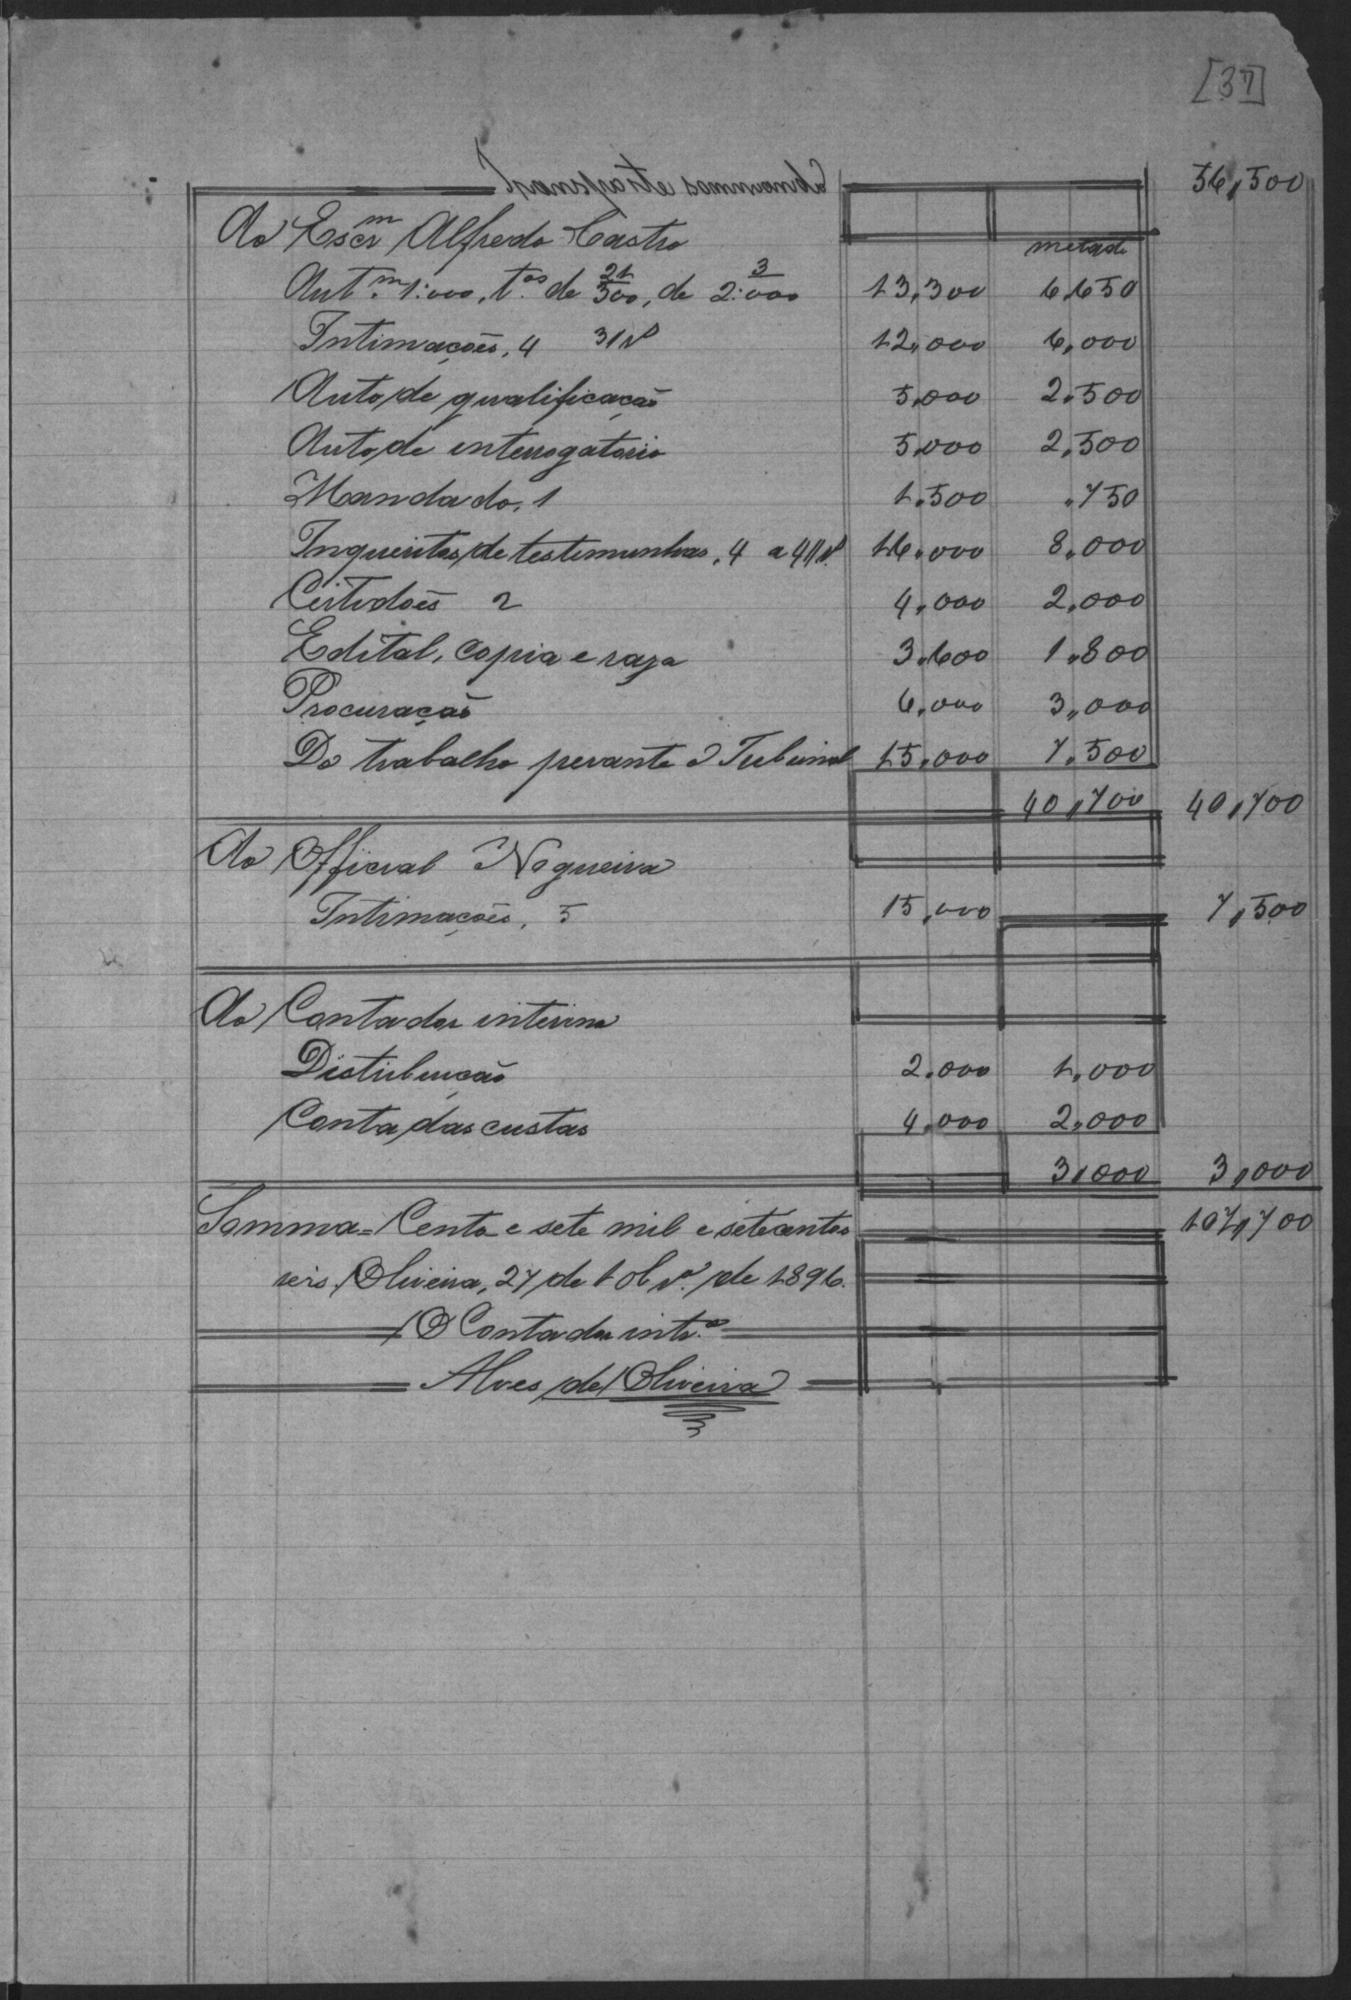 [37]
Transporte 56,500
Ao Escr.m Alfredo Castro metade
Aut.m 1:000, t.os de 21/500, de 3/2:000 13,300 6,650
Intimações, 4 12,000 6,000
Auto de qualificação 5,000 2,500
Auto de interrogatorio 5,000 2,500
Mandado, 1 1,500 ,750
Inqueritos de testemunhas, 4 16,000 8,000
Certidões 2 4,000 2,000
Edital, copia e raza 3,600 1,800
Procuração 6,000 3,000
Do trabalho perante o Tribunal 15,000 7,500
40,700 40,700
Ao Official Nogueira
Intimações, 5 15,000 7,500
Ao Contador interino
Distribuição 2,000 1,000
Conta das custas 4,000 2,000
3,000 3,000
Somma = Cento e sete mil e setecentos 107,700
reis. Oliveira, 27 de 10br.º de 1896.
O Contador int.o
Alves de Oliveira